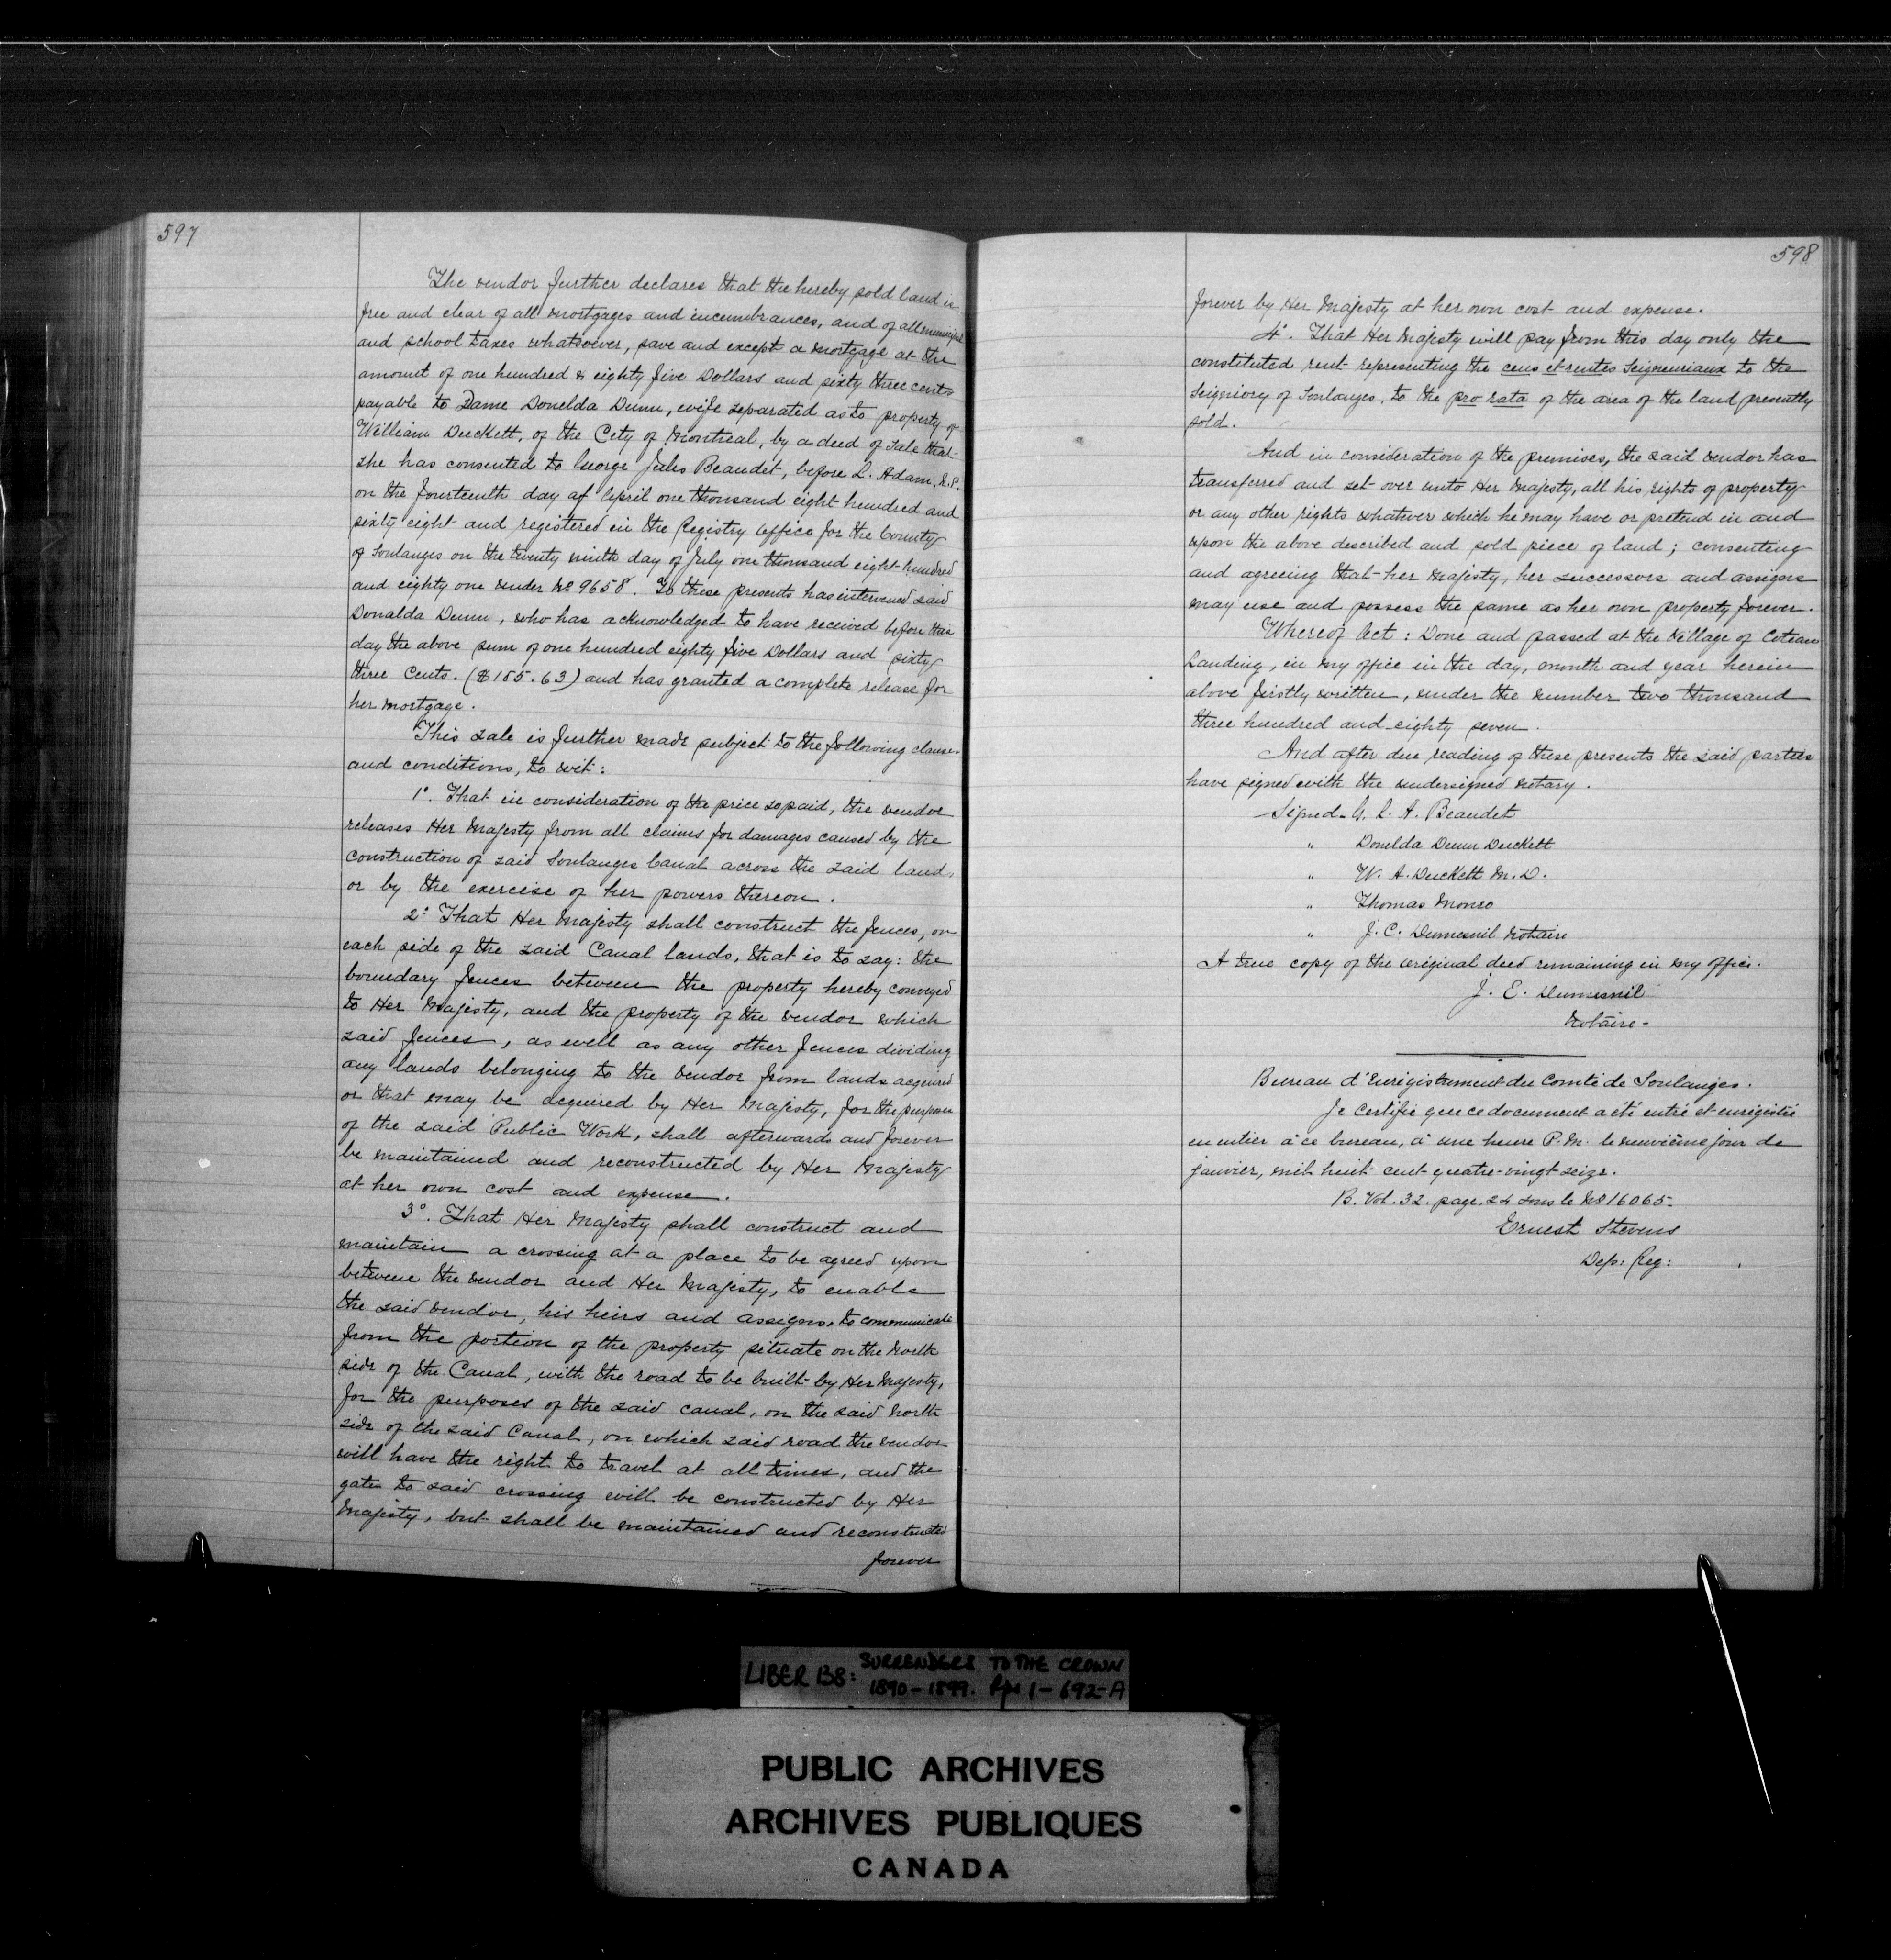 597
The vendor further declares that the hereby sold land is
free and clear of all mortgages and incumbrances, and of all municipal
and school taxes whatsoever, save and except a mortgage at the
amount of one hundred & eighty five Dollars and sixty three cents
payable to Dame Donelda Dunn, wife separated as to property of
William Duckett, of the City of Montreal, by a deed of sale that
she has consented to George Jules Beaudet, before L. Adam, N.P.
on the fourteenth day of April one thousand eight hundred and
sixty eight and registered in the Registry Office for the County
of Soulanges on the twenty ninth day of July one thousand eight hundred
and eighty one under No 9658. To these presents has intervened said
Donalda Dunn, who has acknowledged to have received before this
day the above sum of one hundred eighty five Dollars and sixty
three Cents. ($185.63) and has granted a complete release for
her mortgage.
This sale is further made subject to the following clauses
and conditions, to wit:
1o. That in consideration of the price so paid, the vendor
releases Her Majesty from all claims for damages caused by the
construction of said Soulanges Canal across the said land,
or by the exercise of her powers thereon.
2o That Her Majesty shall construct the fences, on
each side of the said Canal lands, that is to say: the
boundary fences between the property hereby conveyed
to Her Majesty, and the property of the vendor which
said fences, as well as any other fences dividing
any lands belonging to the vendor from lands acquired
or that may be acquired by Her Majesty, for the purposes
of the said Public Work, shall afterwards and forever
be maintained and reconstructed by Her Majesty
at her own cost and expense.
3o. That Her Majesty shall construct and
maintain a crossing at a place to be agreed upon
between the vendor and Her Majesty, to enable
the said vendor, his heirs and assigns, to communicate
from the portion of the property situate on the North
side of the Canal, with the road to be built by Her Majesty,
for the purposes of the said canal, on the said North
side of the said Canal, on which said road the vendor
will have the right to travel at all times, and the
gates to said crossing will be constructed by Her
Majesty, but shall be maintained and reconstructed
forever
598
forever by Her Majesty at her own cost and expense.
4o. That Her Majesty will pay from this day only the
constituted rent representing the cens et rentes Seigneuriaux to the
Seigniory of Soulanges, to the pro rata of the area of the land presently
sold.
And in consideration of the premises, the said vendor has
transferred and set over unto Her Majesty, all his rights of property
or any other rights whatever which he may have or pretend in and
upon the above described and sold piece of land; consenting
and agreeing that her Majesty, her successors and assigns
may use and possess the same as her own property forever.
Whereof Act: Done and passed at the Village of Coteau
Landing, in my office in the day, month and year herein
above firstly written, under the number two thousand
three hundred and eighty seven.
And after due reading of these presents the said parties
have signed with the undersigned Notary.
Signed G. L. A. Beaudet
" Donelda Dunn Duckett
" W. A. Duckett M.D.
" Thomas Monro
" J. C. Dumesnil Notaire
A true copy of the original deed remaining in my office.
J. E. Dumesnil
Notaire-
Bureau d'Enrégistrement du Comté de Soulanges.
Je Certifie que ce document a été entré et enrégistré
en entier à ce bureau, à une heure P.M. le neuvième jour de
janvier, mil huit cent quatre-vingt seize.
B. Vol. 32. page. 24 sous le No 16065-
Ernest Stevens
Dep: Reg:
LIBER B8: SURRENDERS TO THE CROWN
1890-1899. Pps 1-692-A
PUBLIC ARCHIVES
ARCHIVES PUBLIQUES
CANADA